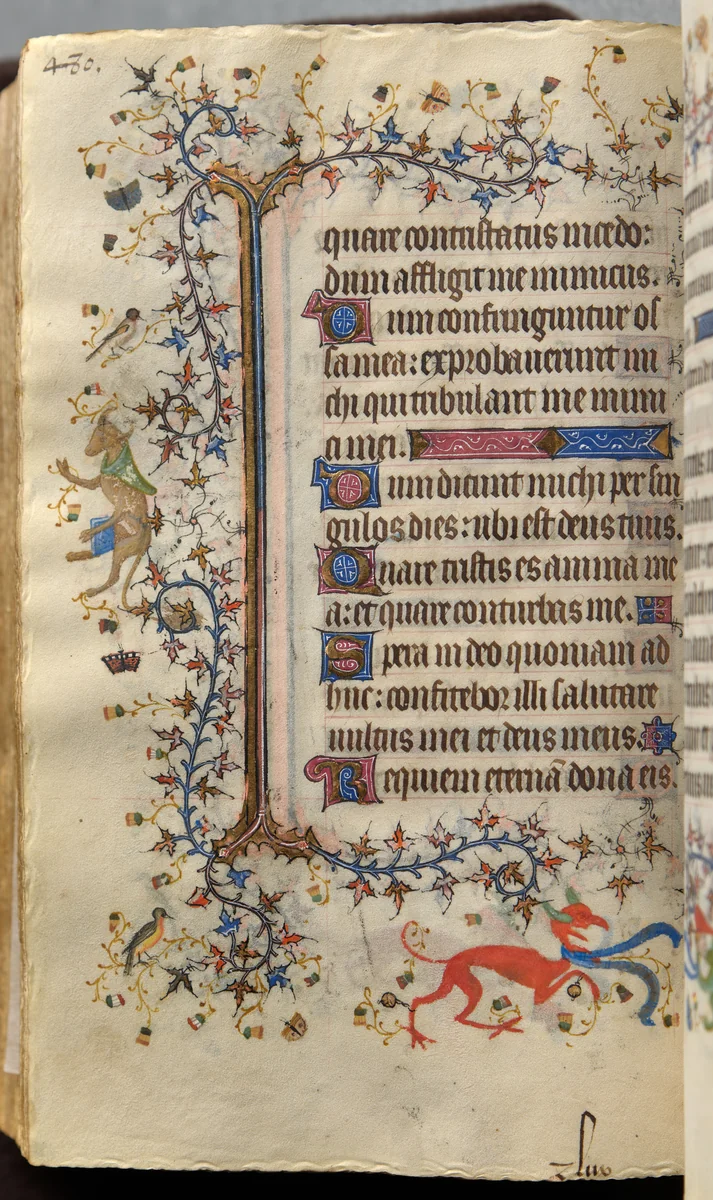 430.
quare contristatus incedo:
dum affligit me inimicus.
Dum confringuntur os
sa mea: exprobauerunt mi
chi qui tribulant me inimi
ci mei.
Dum dicunt michi per sin
gulos dies: ubi est deus tuus.
Quare tristis es anima me
a: et quare conturbas me.
Spera in deo quoniam ad
huc: confitebor illi salutare
uultus mei et deus meus.
Requiem eternā dona eis.